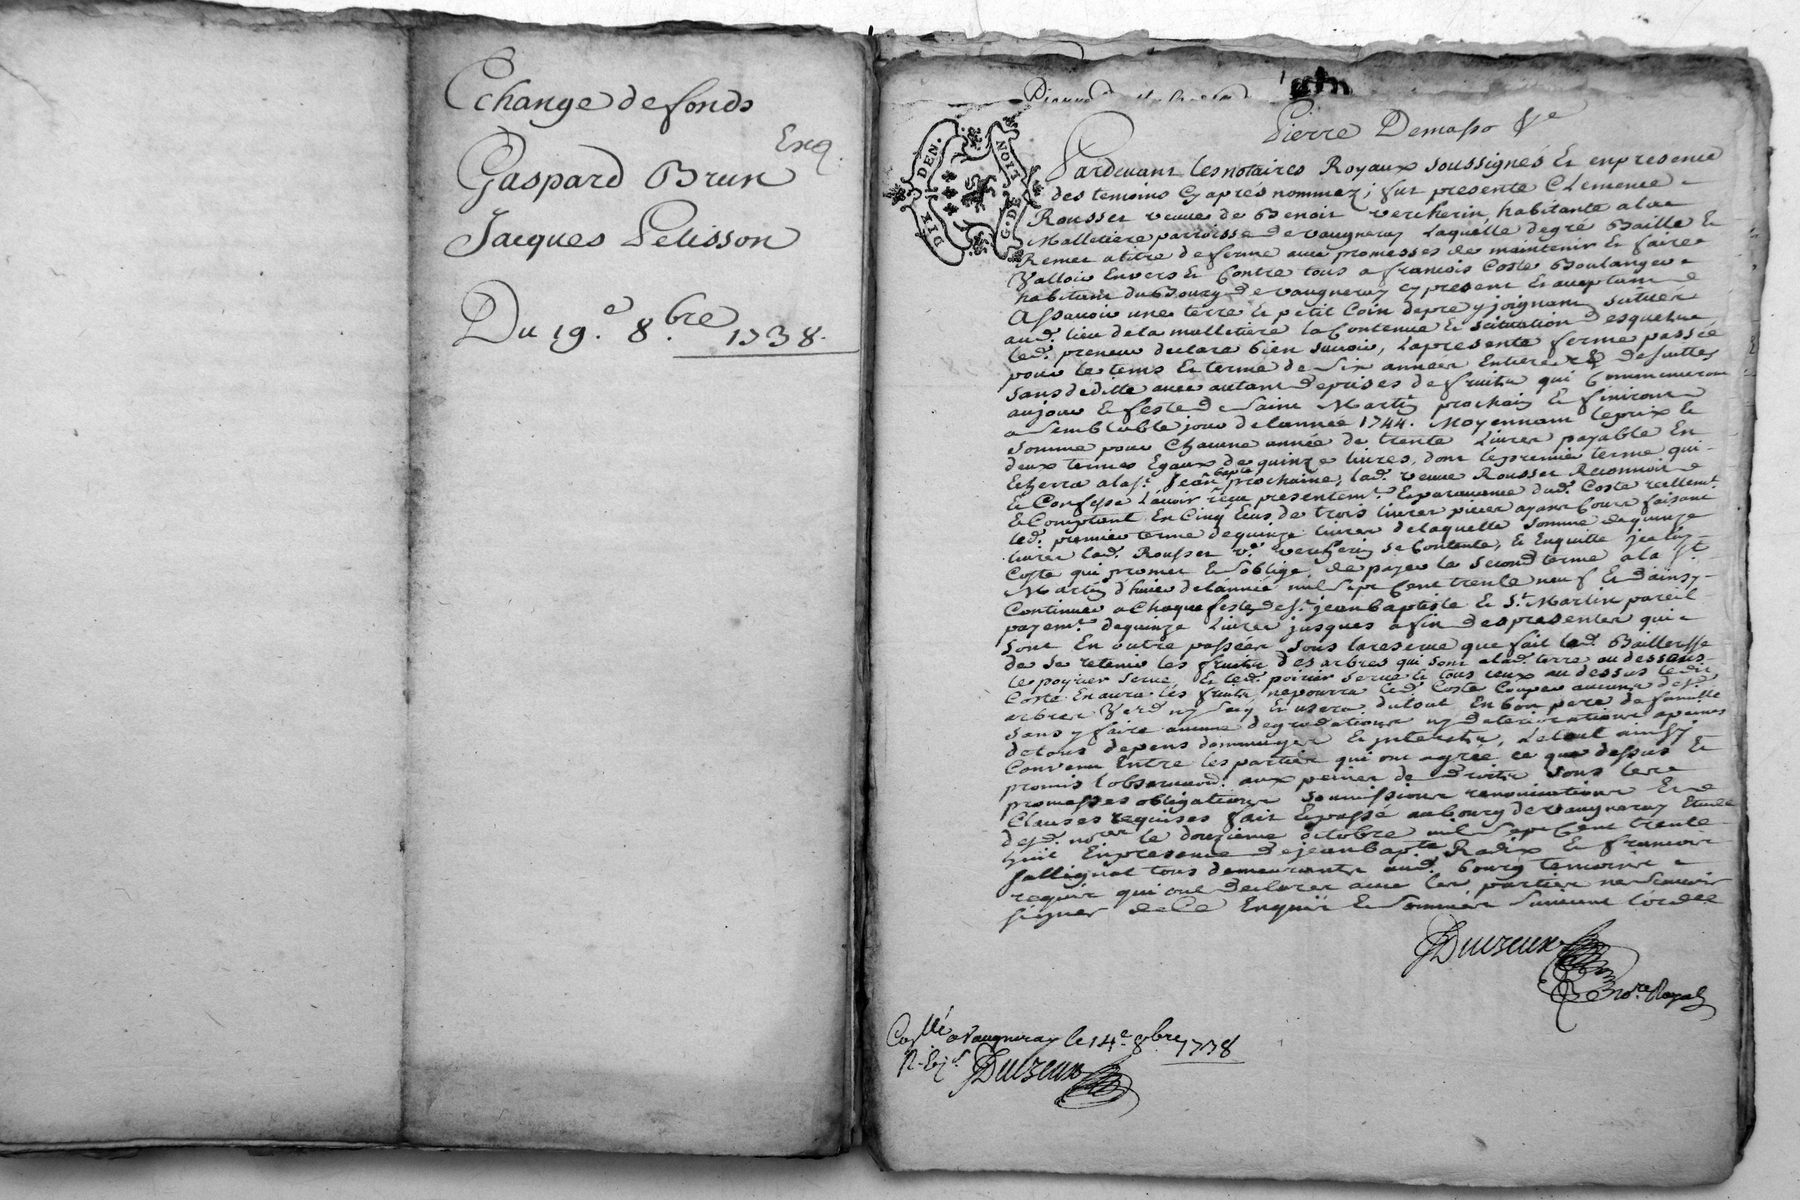 Echange de fonds
Exq.
Gaspard Brun
Jacques Pelisson
Du 19.e 8.bre 1738.
Pierre Demasso Ve
DIX DEN.
G. DE LION
Pardevant les notaires Royaux soussignés Et en presence
des temoins Cy aprés nommez, fut presente Clemence
Rousset veuve de Benoit vercherin, habitante a la
Malletiere parroisse de vaugneray Laquelle de gré Baille Et
Remet a titre de ferme avec promesses de maintenir Et faire
Valloir Envers Et Contre tous a francois Coste Boulanger
habitant du Bourg de vaugneray cy present Et acceptant
Assavoir une terre Et petit Coin de pre y joignant scitués
aud. lieu de la malletiere la Contenue Et scituation desquels
led. preneur declara bien scavoir, La presente ferme passée
pour le tems Et terme de six années Entieres Et de suittes
sans déditte avec autant de prises de fruits qui Commenceront
au jour Et feste de Saint Martin prochain Et finiront
a semblable jour de l'année 1744. Moyennant le prix Et
somme pour Chacune année de trente Livres payable En
deux termes Egaux de quinze livres, dont le premier terme qui
Echerra a la St. Jean bapte prochaine, lad. veuve Rousset Reconnoit
Et Confesse L'avoir reçu presentemt. Et par avance dud. Coste reellemt.
Et Comptant En Cinq Ecus de trois livres piece ayant Cours faisant
led. premier terme de quinze livres de laquelle somme de quinze
livres lad. Rousset ve. vercherin se Contente, Et Enquitte led.
Coste qui promet Et s'oblige de payer le second terme a la St.
Martin d'hiver de l'année mil sept Cent trente neuf Et d'ainsy
Continuer a Chaque feste de St. jean baptiste Et St. Martin pareil
payemt. de quinze Livres jusques a fin des presentes qui
sont En outre passées sous la reserve que fait lad. Bailleresse
de se retenir les fruits des arbres qui sont a lad. terre au dessous
le poirier serve, Et led. poirier serve Et tous ceux au dessus led.
Coste En aura les fruits ne pourra led. Coste Couper aucuns desd.
arbres Verd ny sec Et usera du tout En bon pere de famille
sans y faire aucune degradations ny deteriorations a peines
de tous depens dommages Et interests, Le tout ainsy
Convenu Entre les parties qui ont agréé ce que dessus Et
promis l'observer aux peines de droits sous leurs
promesses obligations soumissions renonciations Et
Clauses requises fait Et passé au bourg de vaugneray Etude
desd. nores le douzieme octobre mil sept Cent trente
huit En presence de jean bapte Radix Et francois
tous demeurants aud. bourg temoins
requis qui ont declarés avec les parties ne scavoir
signer de Ce Enquis Et sommés suivant l'ordce
Duizeux
nore. Royal
Collé a Vaugneray le 14e. 8bre 1738
Duizeux